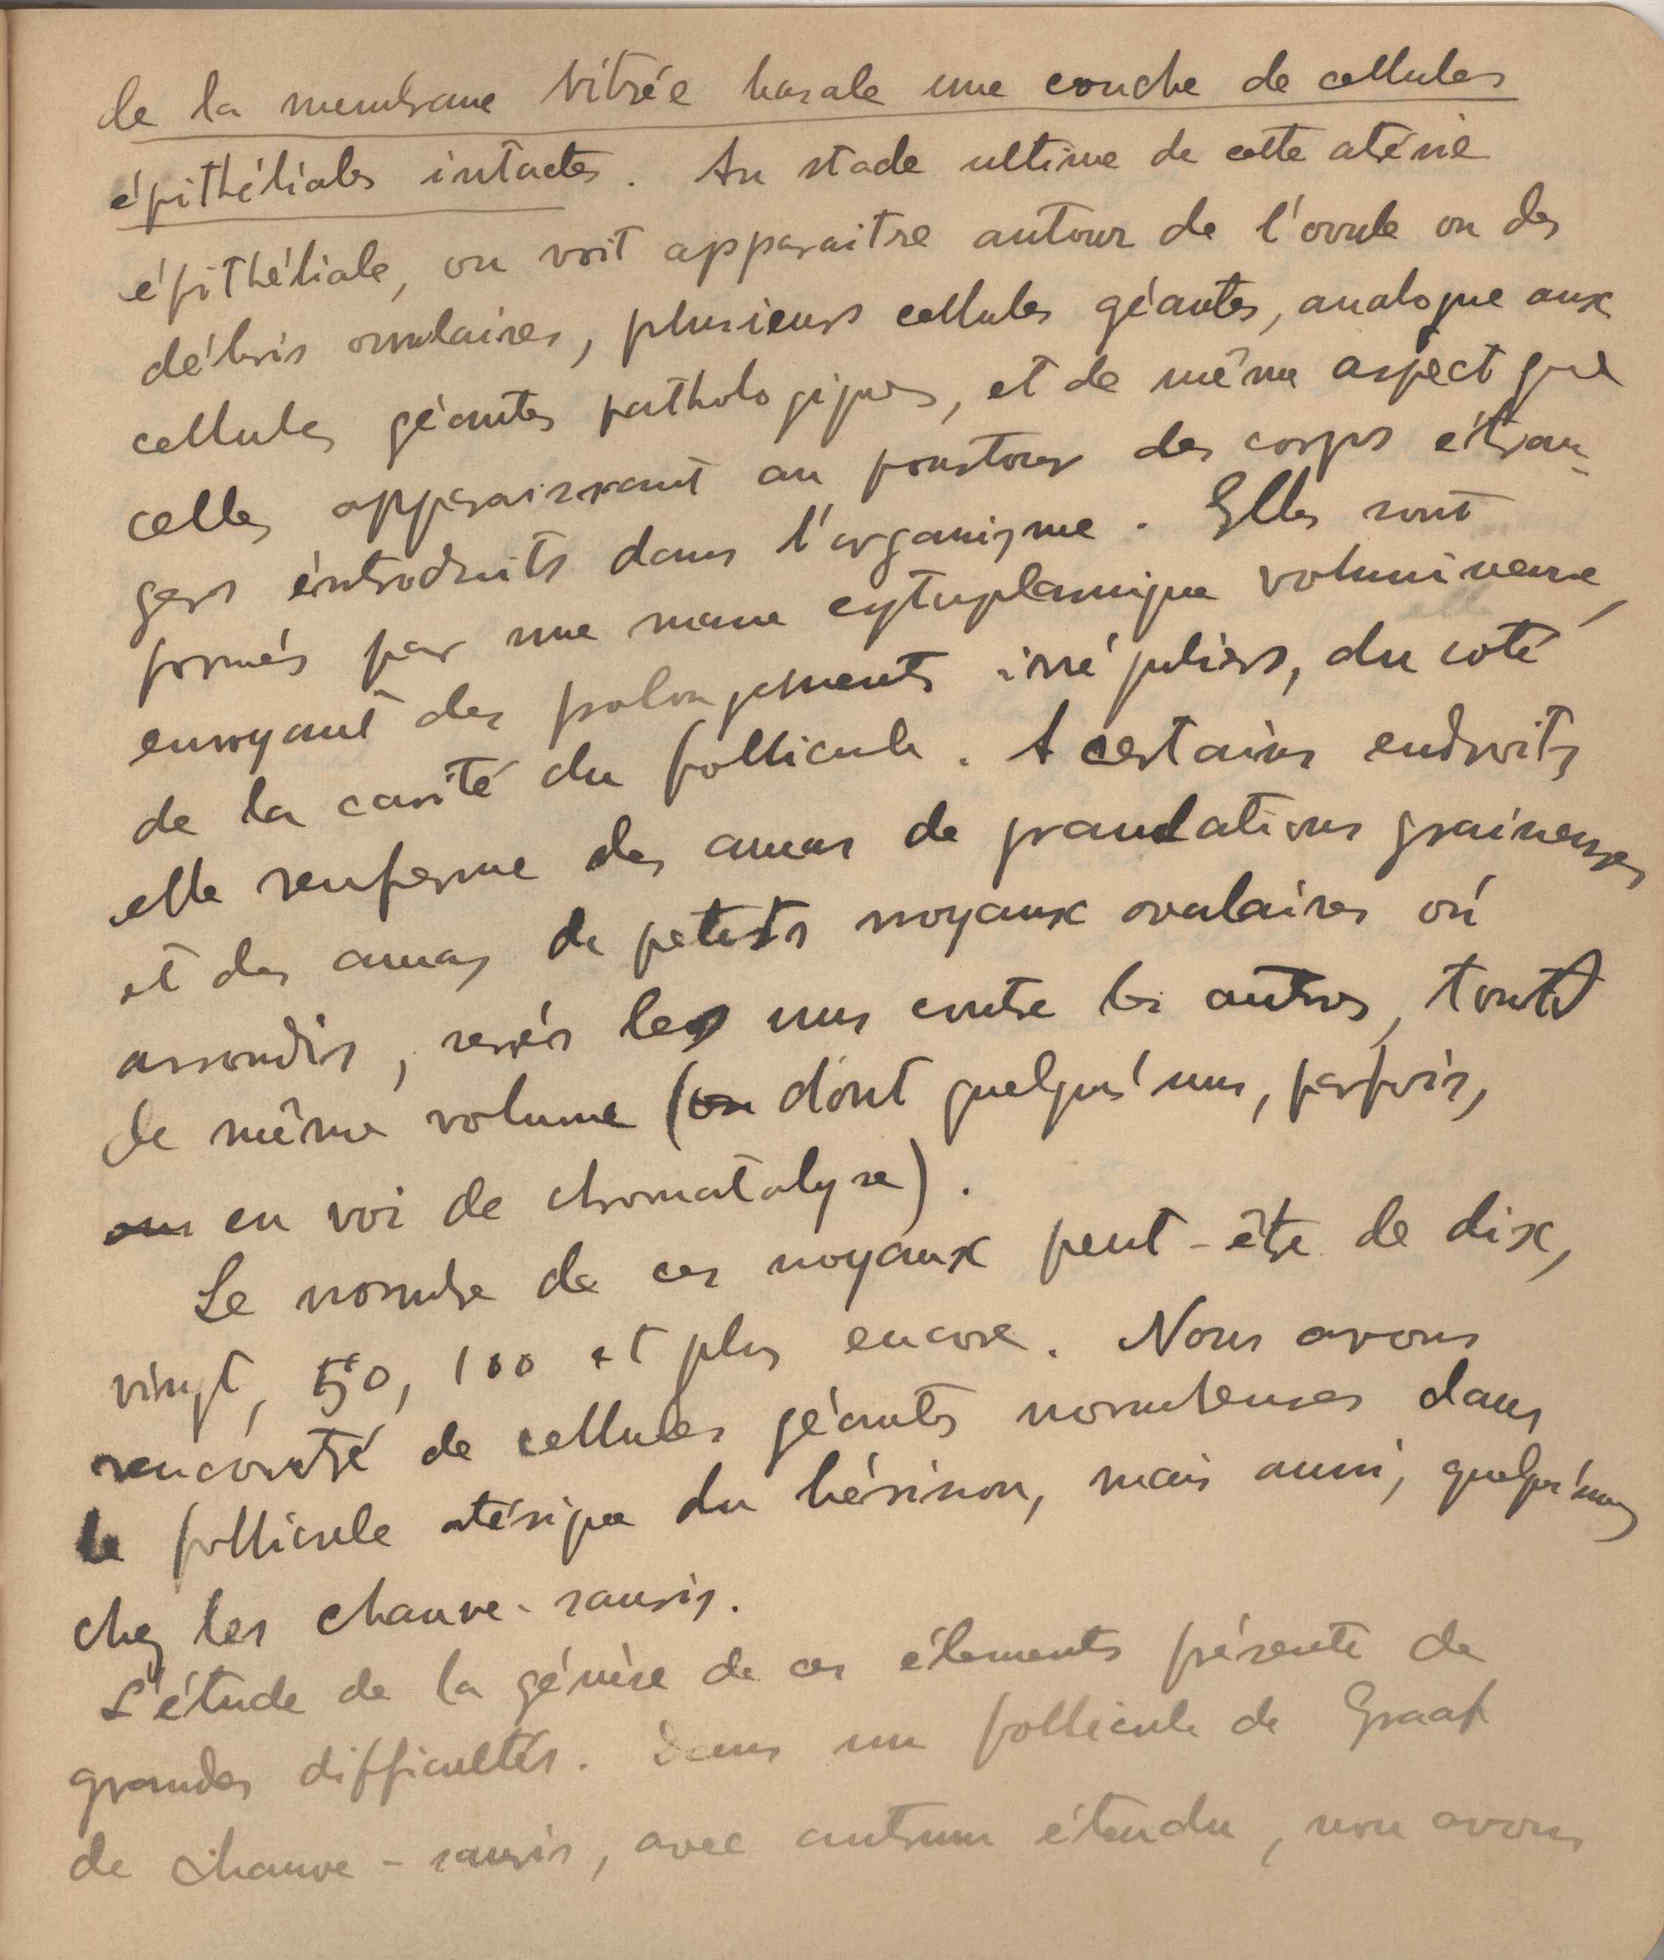 de la membrane vitrée basale une couche de cellules
épithéliales intactes. Au stade ultime de cette atésie
épithéliale, on voit apparaitre autour de l'ovule ou des
débris ovulaires, plusieurs cellules géantes, analogue aux
cellules géantes pathologiques, et de même aspect que
celles apparaissant au pourtour des corps étran-
gers introduits dans l'organisme. Elles sont
formés par une masse cytoplasmique volumineuse,
envoyant des prolongements irréguliers, du coté
de la cavité du follicule. A certains endroits
elle renferme des amas de granulations graineuses
et des amas de petits noyaux ovulaires où
arrondis, serrés les uns contre les autres, tout
de même volume (ou dont quelqu'uns, parfois,
ou en voi de chromatolyse).
Le nombre de ces noyaux peut-ête de dix,
vingt, 50, 100 et plus encore. Nous avons
rencontré de cellules géantes nombreuses dans
le follicule atésique du hérisson, mais aussi, quelqu'uns
chez les chauve-souris.
L'étude de la génèse de ces élements présente de
grandes difficultés. Dans un follicule de Graaf
de chauve-souris, avec antrum étendu, nou avons